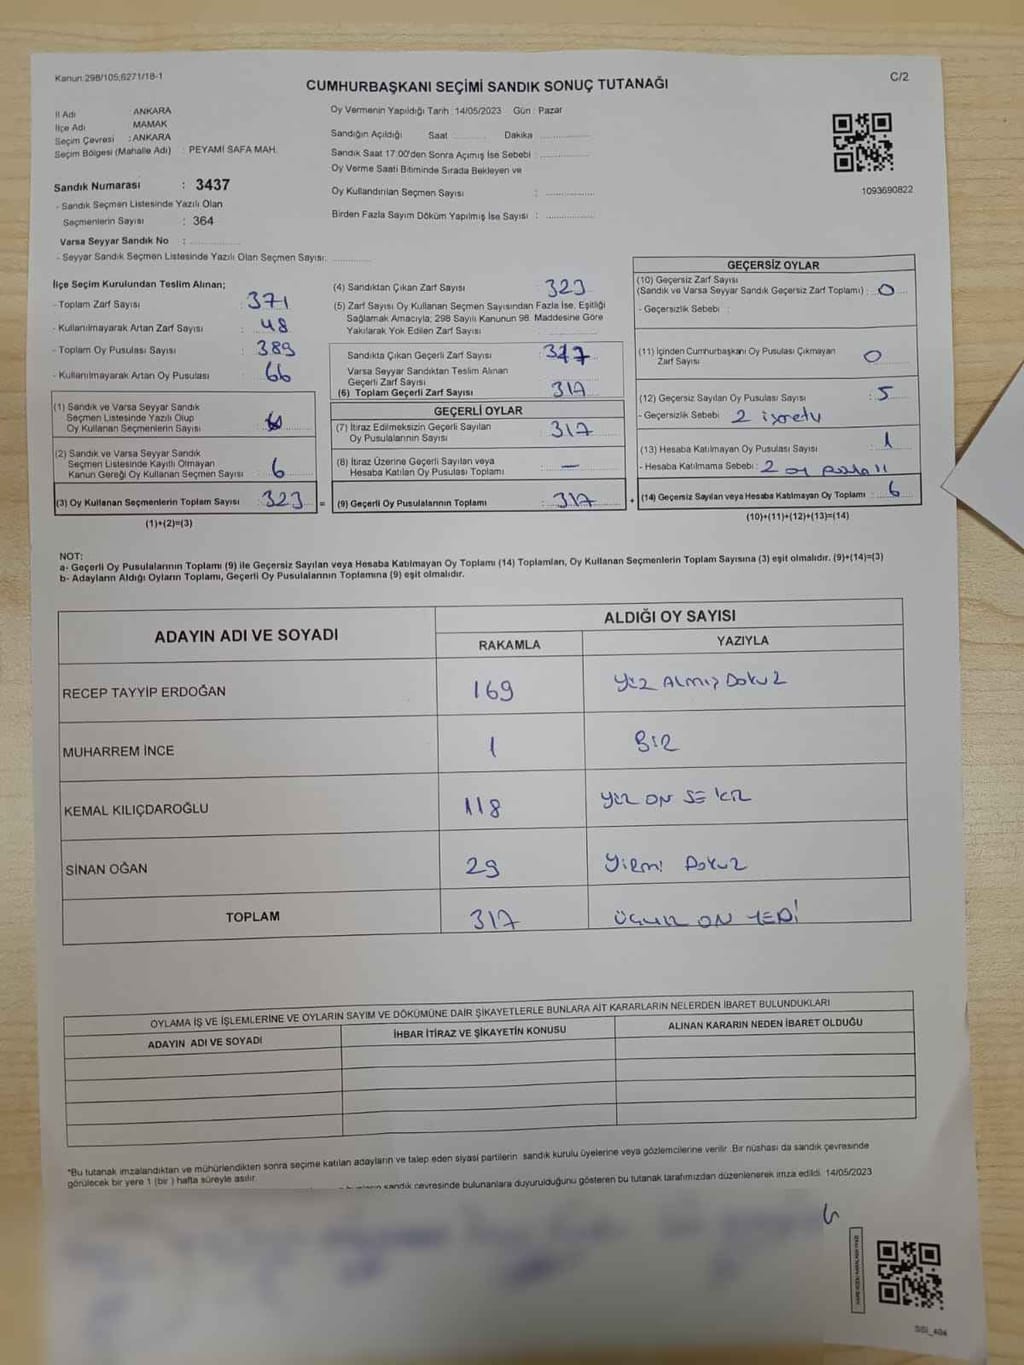 Kanun:298/105,6271/18-1
C/2
CUMHURBAŞKANI SEÇİMİ SANDIK SONUÇ TUTANAĞI
İl Adı ANKARA
İlçe Adı MAMAK
Seçim Çevresi : ANKARA
Seçim Bölgesi (Mahalle Adı) : PEYAMİ SAFA MAH.
Sandık Numarası : 3437
- Sandık Seçmen Listesinde Yazılı Olan
Seçmenlerin Sayısı : 364
Varsa Seyyar Sandık No :
- Seyyar Sandık Seçmen Listesinde Yazılı Olan Seçmen Sayısı:
Oy Vermenin Yapıldığı Tarih : 14/05/2023 Gün : Pazar
Sandığın Açıldığı Saat Dakika
Sandık Saat 17:00'den Sonra Açılmış İse Sebebi :
Oy Verme Saati Bitiminde Sırada Bekleyen ve
Oy Kullandırılan Seçmen Sayısı :
Birden Fazla Sayım Döküm Yapılmış İse Sayısı :
1093690822
İlçe Seçim Kurulundan Teslim Alınan;
- Toplam Zarf Sayısı : 371
- Kullanılmayarak Artan Zarf Sayısı : 48
- Toplam Oy Pusulası Sayısı : 389
- Kullanılmayarak Artan Oy Pusulası : 66
(1) Sandık ve Varsa Seyyar Sandık
Seçmen Listesinde Yazılı Olup
Oy Kullanan Seçmenlerin Sayısı :
(2) Sandık ve Varsa Seyyar Sandık
Seçmen Listesinde Kayıtlı Olmayan
Kanun Gereği Oy Kullanan Seçmen Sayısı : 6
(3) Oy Kullanan Seçmenlerin Toplam Sayısı : 323 =
(1)+(2)=(3)
(4) Sandıktan Çıkan Zarf Sayısı : 323
(5) Zarf Sayısı Oy Kullanan Seçmen Sayısından Fazla İse, Eşitliği
Sağlamak Amacıyla; 298 Sayılı Kanunun 98. Maddesine Göre
Yakılarak Yok Edilen Zarf Sayısı :
Sandıkta Çıkan Geçerli Zarf Sayısı : 317
Varsa Seyyar Sandıktan Teslim Alınan
Geçerli Zarf Sayısı
(6) Toplam Geçerli Zarf Sayısı : 317
GEÇERLİ OYLAR
(7) İtiraz Edilmeksizin Geçerli Sayılan
Oy Pusulalarının Sayısı : 317
(8) İtiraz Üzerine Geçerli Sayılan veya
Hesaba Katılan Oy Pusulası Toplamı : —
(9) Geçerli Oy Pusulalarının Toplamı : 317 +
GEÇERSİZ OYLAR
(10) Geçersiz Zarf Sayısı
(Sandık ve Varsa Seyyar Sandık Geçersiz Zarf Toplamı) : 0
- Geçersizlik Sebebi :
(11) İçinden Cumhurbaşkanı Oy Pusulası Çıkmayan
Zarf Sayısı : 0
(12) Geçersiz Sayılan Oy Pusulası Sayısı : 5
- Geçersizlik Sebebi : 2 işaretli
(13) Hesaba Katılmayan Oy Pusulası Sayısı : 1
- Hesaba Katılmama Sebebi : 2 oy
(14) Geçersiz Sayılan veya Hesaba Katılmayan Oy Toplamı : 6
(10)+(11)+(12)+(13)=(14)
NOT:
a- Geçerli Oy Pusulalarının Toplamı (9) ile Geçersiz Sayılan veya Hesaba Katılmayan Oy Toplamı (14) Toplamları, Oy Kullanan Seçmenlerin Toplam Sayısına (3) eşit olmalıdır. (9)+(14)=(3)
b- Adayların Aldığı Oyların Toplamı, Geçerli Oy Pusulalarının Toplamına (9) eşit olmalıdır.
ADAYIN ADI VE SOYADI
ALDIĞI OY SAYISI
RAKAMLA YAZIYLA
RECEP TAYYİP ERDOĞAN 169 YÜZ ALTMIŞ DOKUZ
MUHARREM İNCE 1 BİR
KEMAL KILIÇDAROĞLU 118 YÜZ ON SEKİZ
SİNAN OĞAN 29 Yirmi Dokuz
TOPLAM 317 ÜÇYÜZ ON YEDİ
OYLAMA İŞ VE İŞLEMLERİNE VE OYLARIN SAYIM VE DÖKÜMÜNE DAİR ŞİKAYETLERLE BUNLARA AİT KARARLARIN NELERDEN İBARET BULUNDUKLARI
ADAYIN ADI VE SOYADI İHBAR İTİRAZ VE ŞİKAYETİN KONUSU ALINAN KARARIN NEDEN İBARET OLDUĞU
*Bu tutanak imzalandıktan ve mühürlendikten sonra seçime katılan adayların ve talep eden siyasi partilerin sandık kurulu üyelerine veya gözlemcilerine verilir. Bir nüshası da sandık çevresinde
görülecek bir yere 1 (bir ) hafta süreyle asılır.
sandık çevresinde bulunanlara duyurulduğunu gösteren bu tutanak tarafımızdan düzenlenerek imza edildi. 14/05/2023